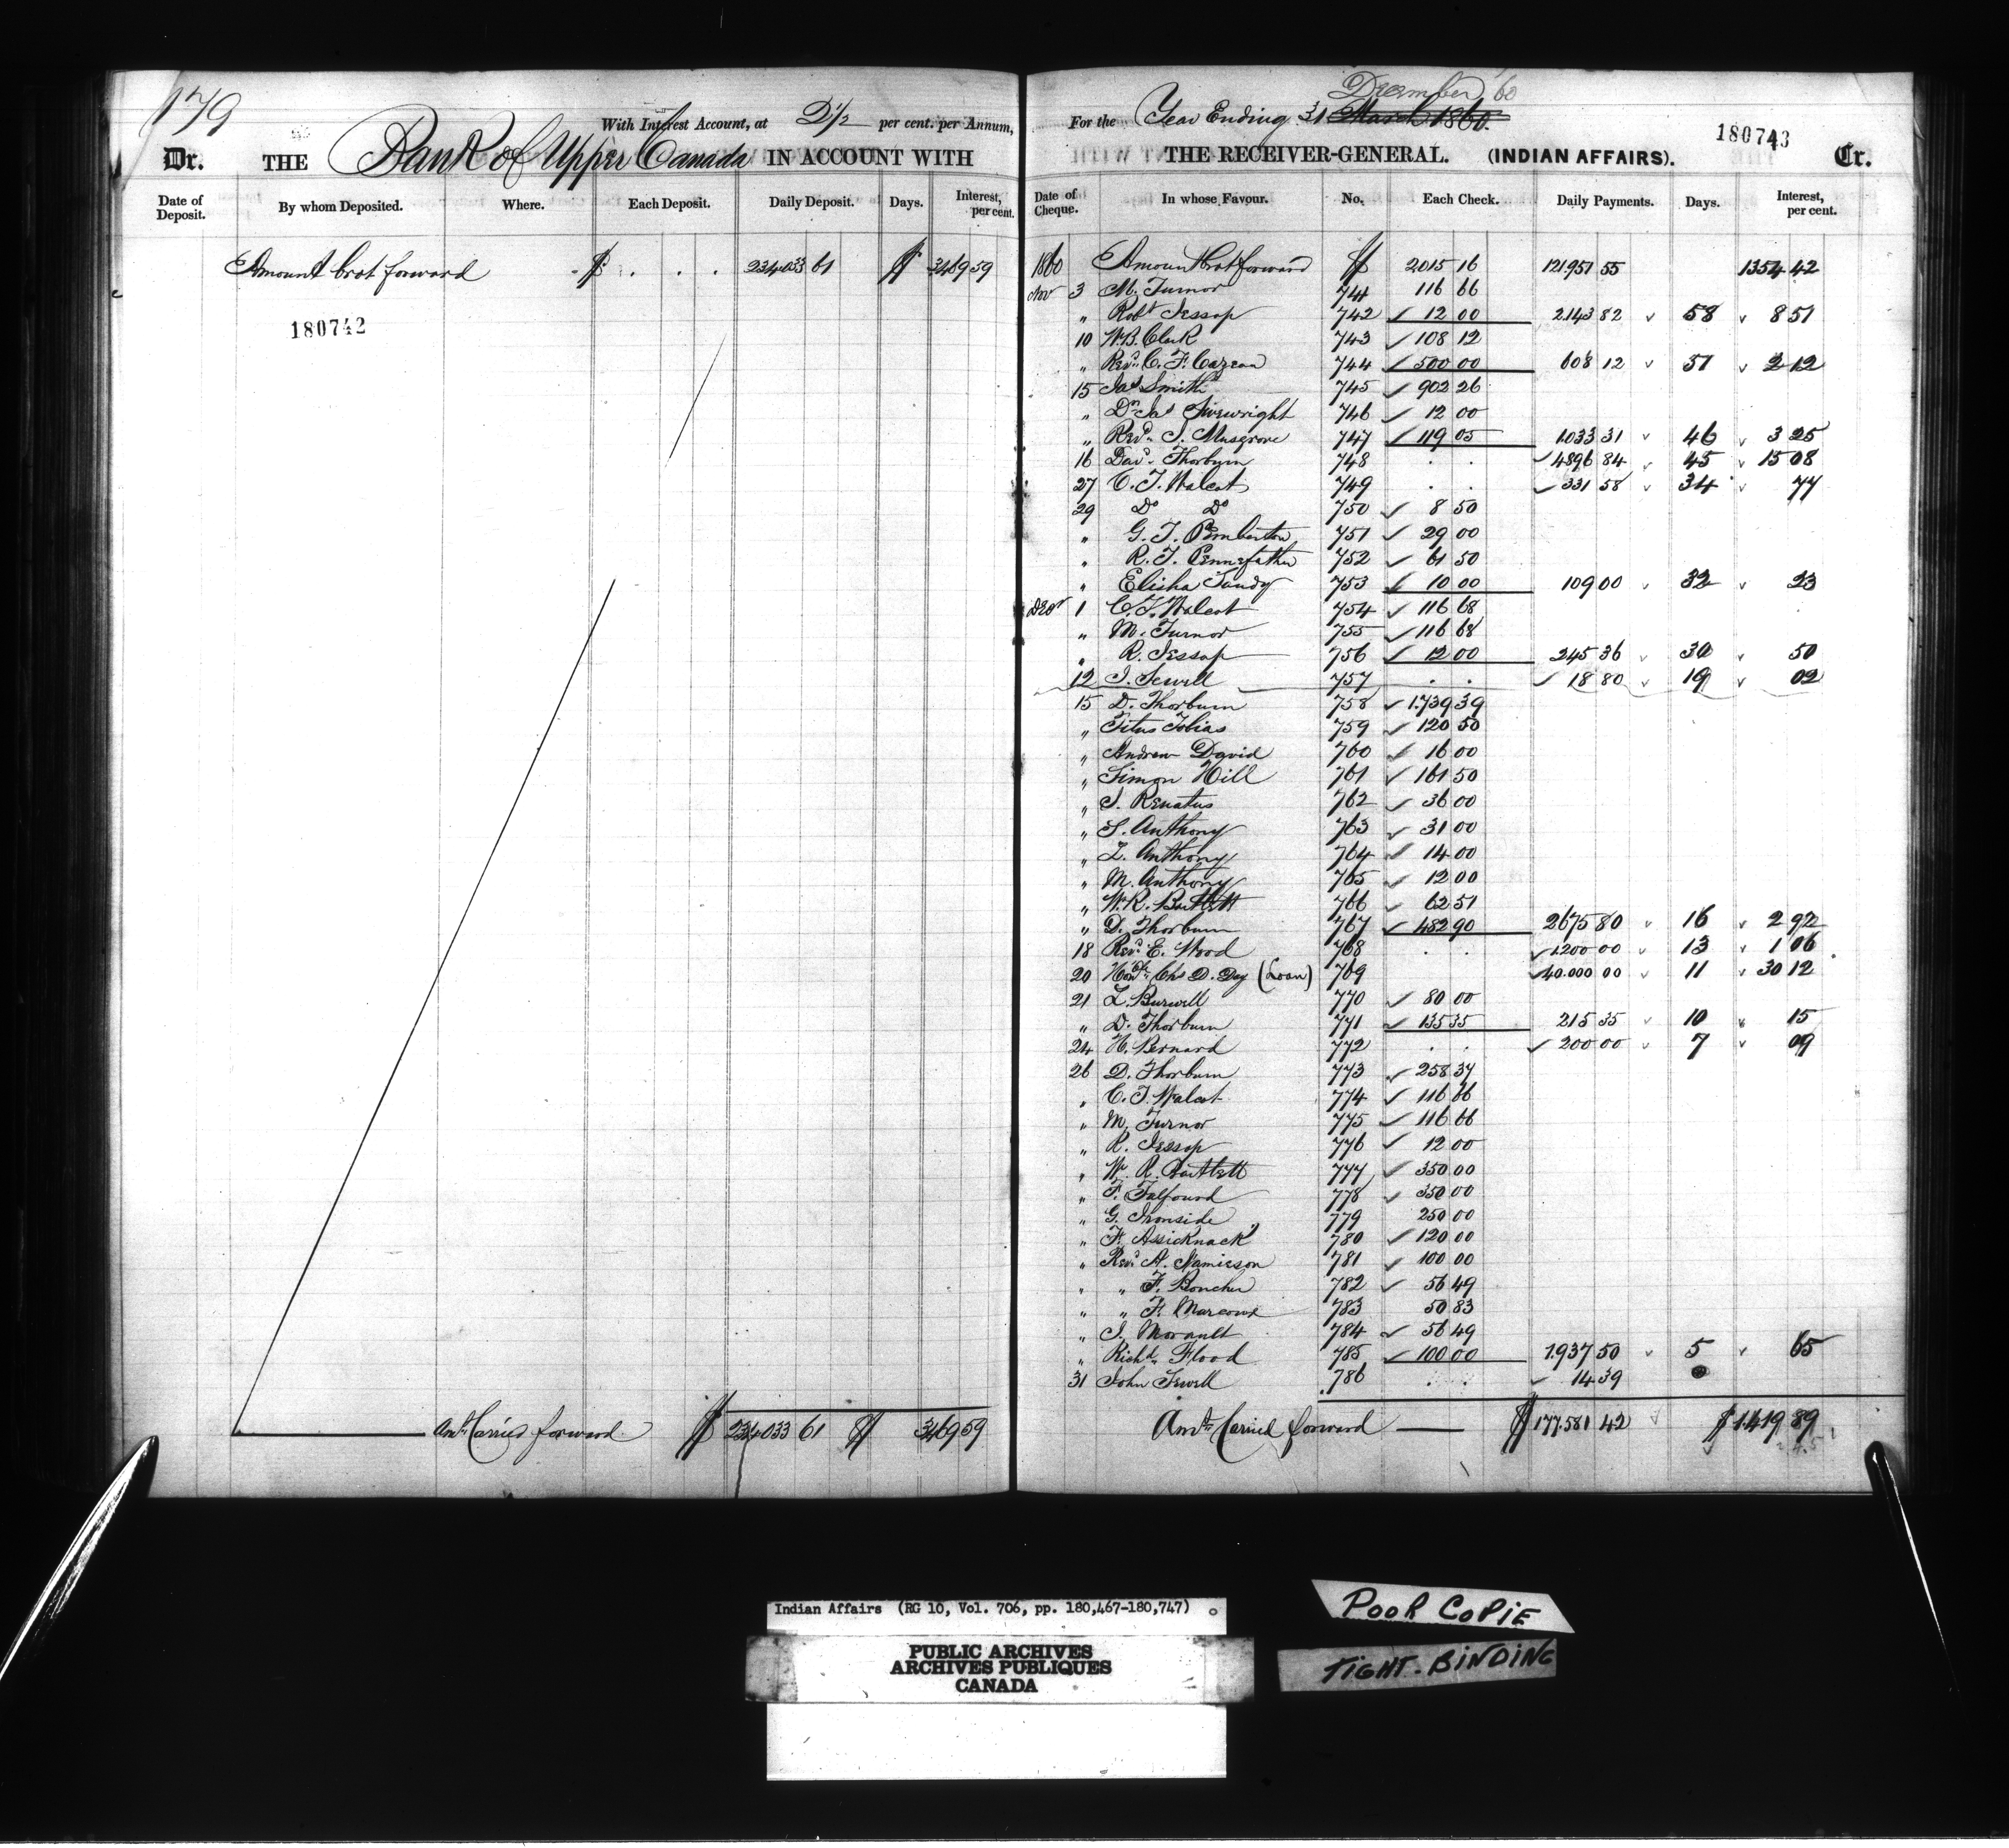 179
With Interest Account, at 2½ per cent. per Annum,
Dr. THE Bank of Upper Canada IN ACCOUNT WITH
Date of Deposit. By whom Deposited. Where. Each Deposit. Daily Deposit. Days. Interest, per cent.
Amount brot forward $ . . . 234033 61 $ 3469 59
180742
Amt Carried forward $ 234033 61 $ 3469 59
December 60
For the Year Ending 31 March 1860.
180743
THE RECEIVER-GENERAL. (INDIAN AFFAIRS). Cr.
Date of Cheque. In whose Favour. No. Each Check. Daily Payments. Days. Interest, per cent.
1860 Amount brot forward $ 2015 16 121951 55 1354 42
Nov 3 M. Turnor 741 116 66
" Robt Jessop 742 12 00 2143 82 58 8 51
10 W.B. Clark 743 108 12
" Revd. C. F. Cazeau 744 500 00 608 12 51 2 12
15 Jas Smith 745 902 26
" Dr Jas Sivewright 746 12 00
" Revd. J. Musgrove 747 119 05 1033 31 46 3 25
16 Davd. Thorburn 748 . . 4896 84 45 15 08
27 C. T. Walcot 749 . . 331 58 34 77
29 Do Do 750 8 50
" G. T. Pemberton 751 29 00
" R. T. Pennefather 752 61 50
" Elisha Tandy 753 10 00 109 00 32 23
Decr 1 C. T. Walcot 754 116 68
" M. Turnor 755 116 68
" R. Jessop 756 12 00 245 36 30 50
12 J. Sewell 757 . . 18 80 19 02
15 D. Thorburn 758 1.739 39
" Titus Tobias 759 120 50
" Andrew David 760 16 00
" Simon Hill 761 161 50
" J. Renatus 762 36 00
" S. Anthony 763 31 00
" L. Anthony 764 14 00
" M. Anthony 765 12 00
" W. R. Bartlett 766 62 51
" D. Thorburn 767 482 90 2675 80 16 2 92
18 Revd. E. Wood 768 . . 1200 00 13 1 06
20 Honble Chs D. Day (Loan) 769 40.000 00 11 30 12
21 L. Burwell 770 80 00
" D. Thorburn 771 135 35 215 35 10 15
24 H. Bernard 772 . . 200 00 7 09
26 D. Thorburn 773 258 37
" C. T. Walcot 774 116 66
" M. Turnor 775 116 66
" R. Jessop 776 12 00
" W. R. Bartlett 777 350 00
" F. Talfourd 778 350 00
" G. Ironside 779 250 00
" F. Assicknack 780 120 00
" Revd. A. Jamieson 781 100 00
" " F. Boucher 782 56 49
" " F. Marcoux 783 50 83
" J. Morault 784 56 49
" Richd. Flood 785 100 00 1.937 50 5 65
31 John Sewell 786 . . 14 39
Amt. Carried forward $ 177.581 42 $ 1.419 89
Indian Affairs (RG 10, Vol. 706, pp. 180,467-180,747)
PUBLIC ARCHIVES
ARCHIVES PUBLIQUES
CANADA
POOR COPIE
TIGHT. BINDING